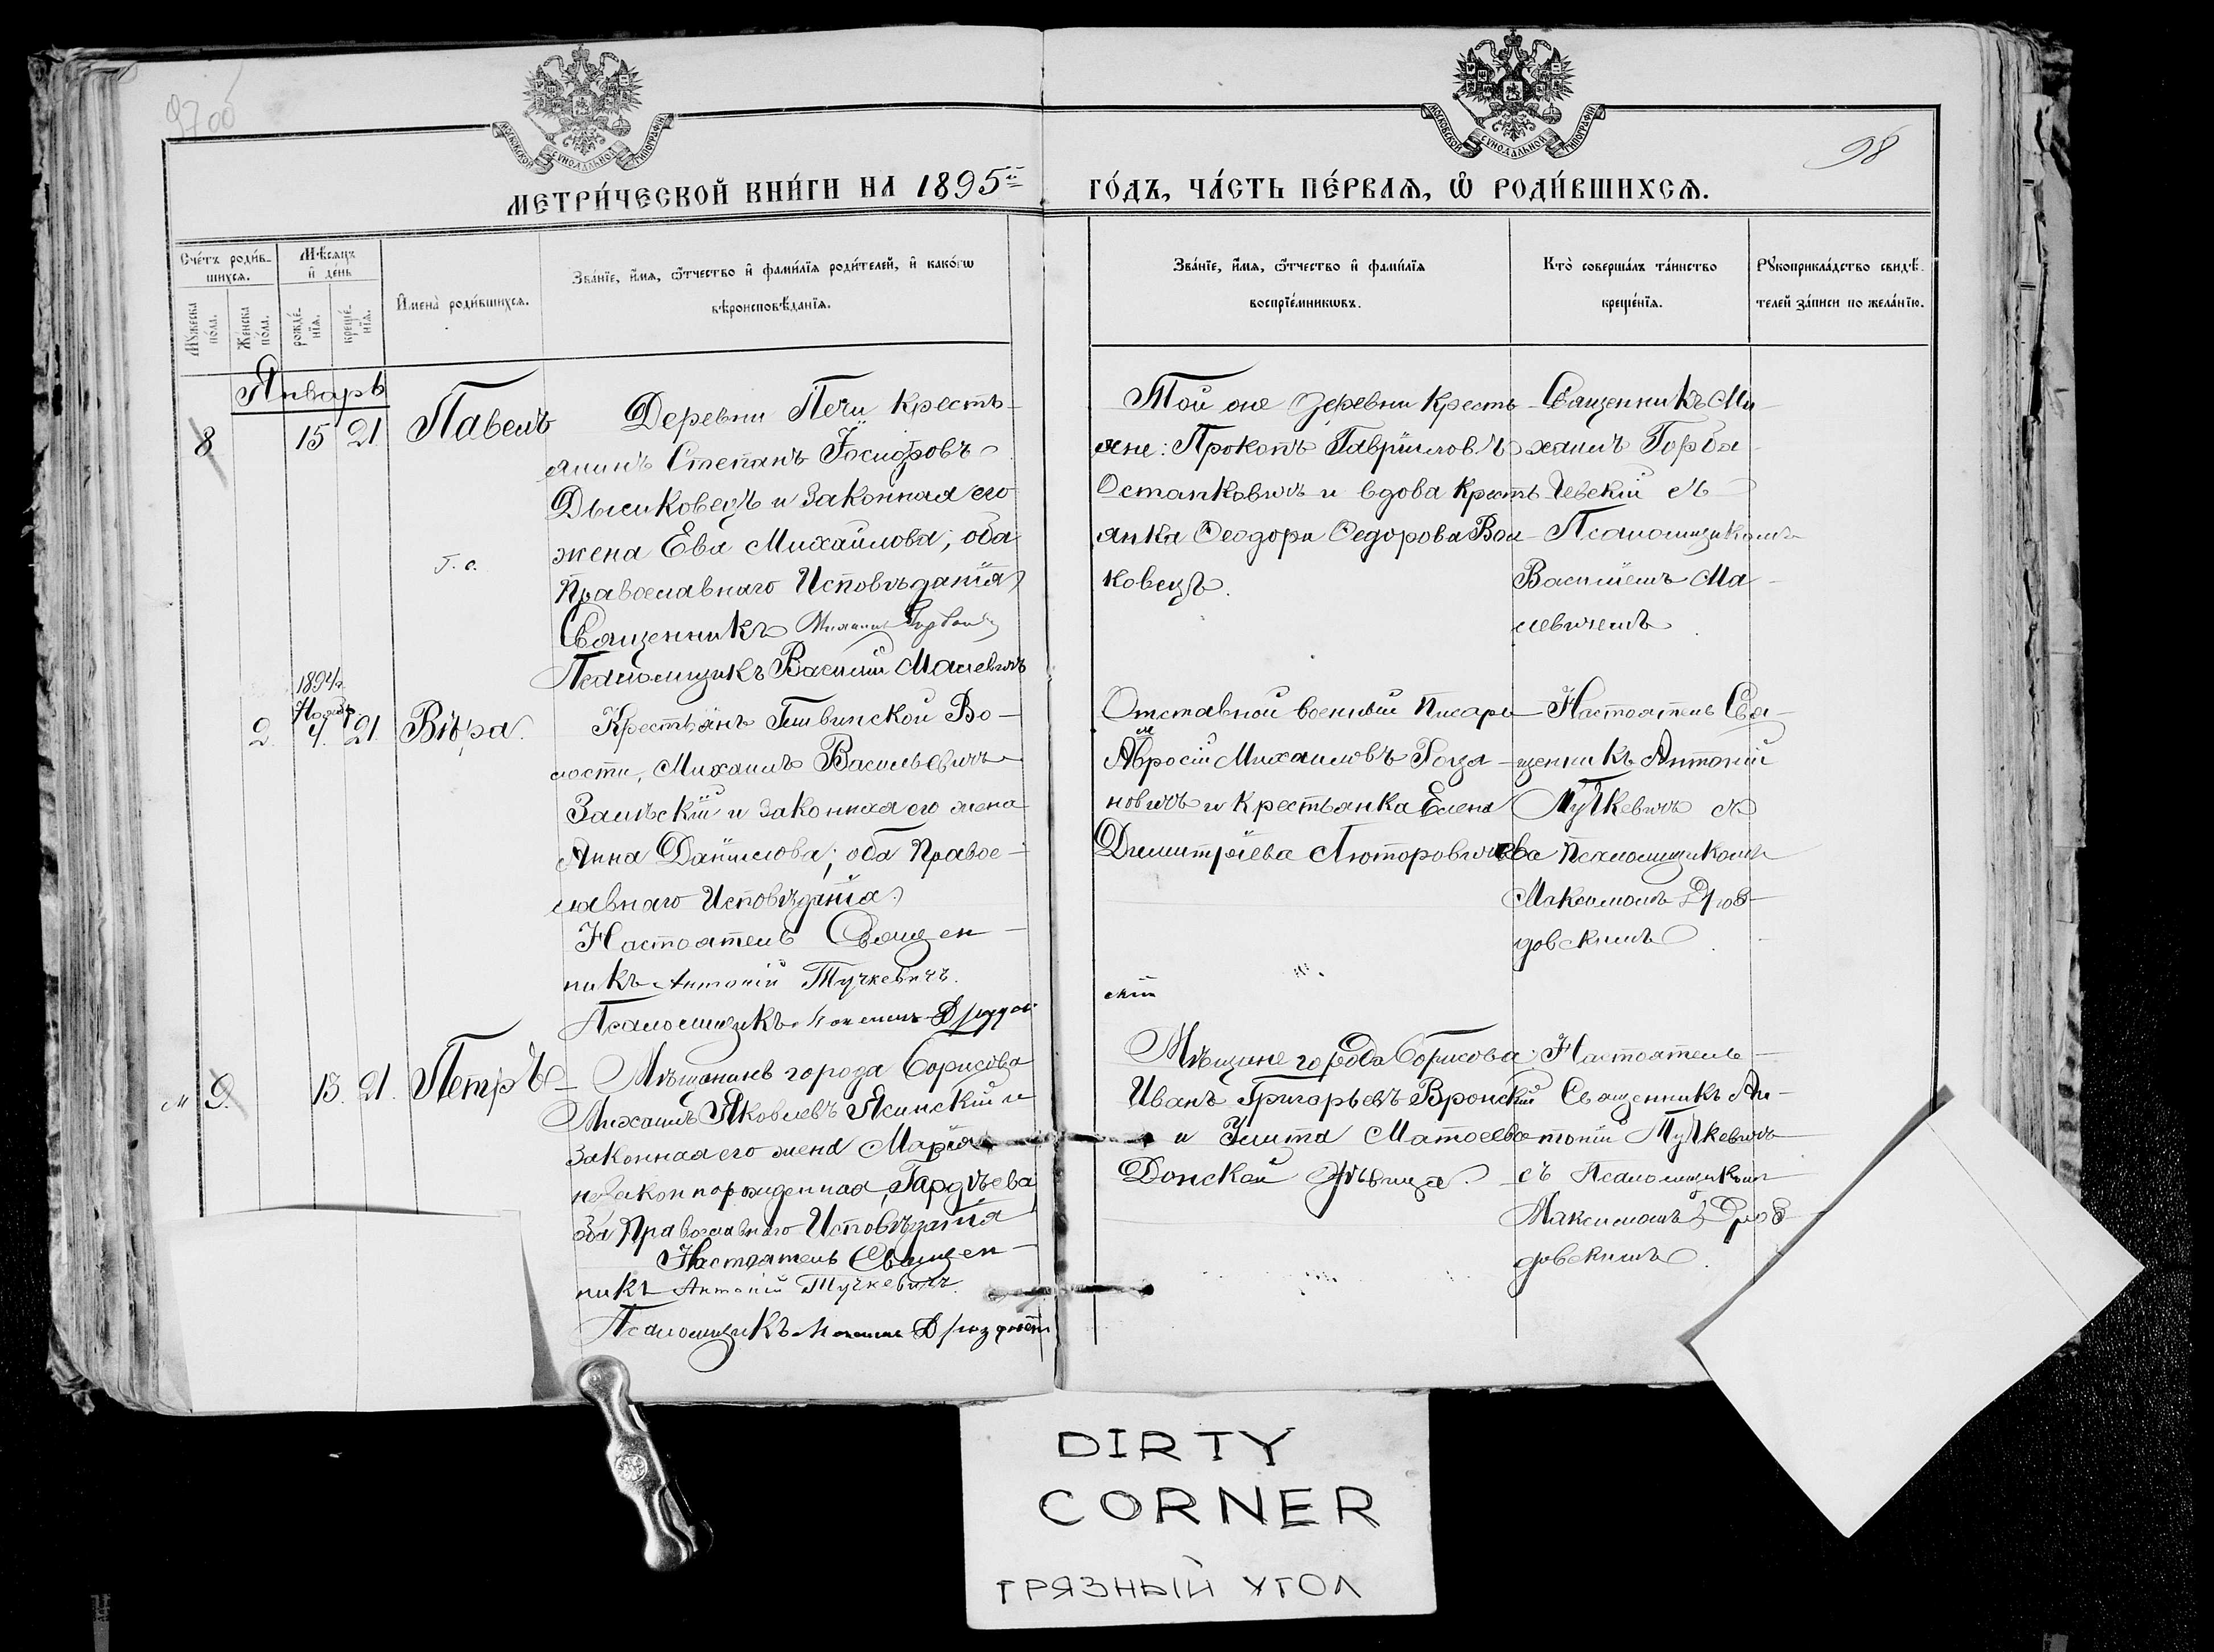 9700
МОСКОВСКОЙ СѴНОДАЛЬНОЙ ТИПОГРАФІИ
МОСКОВСКОЙ СѴНОДАЛЬНОЙ ТИПОГРАФІИ
98
МЕТРИ́ЧЕСКОЙ КНИ́ГИ НА 1895й
ГО́ДЪ, ЧА́СТЬ ПЕ́РВАѦ, Ѡ҆ РОДИ́ВШИХСѦ.
Сче́тъ роди́в-
шихсѧ.
Мѣ́сѧцъ
и҆ день
Мꙋ́жеска
по́ла.
Же́нска
по́ла.
рожде́-
нїѧ.
креще́-
нїѧ.
И҆мена̀ роди́вшихсѧ.
Зва́нїе, и҆́мѧ, ѻ҆́тчество и҆ фами́лїѧ роди́телей, и҆ како́гѡ
вѣроисповѣ́данїѧ.
Зва́нїе, и҆́мѧ, ѻ҆́тчество и҆ фами́лїѧ
воспрїе́мникѡвъ.
Кто̀ соверша́лъ та́инство
креще́нїѧ.
Рꙋкоприкла́дство свидѣ́-
телей за́писи по жела́нїю.
Январь
8 15 21 Павелъ
Деревни Печи кресть-
янинъ Степанъ Іосифовъ
и законная его
жена Ева Михаилова; оба
Православнаго Исповѣданія
Священникъ Михаилъ
Псаломщикъ Василій Малевичъ
Г. с.
Той же деревни кресть-
яне: Прокопъ Гавріиловъ
Останковичъ и вдова кресть-
янка Ѳеодора Ѳедорова Вол-
ковецъ.
Священникъ Ми-
хаилъ Горба-
чевскій съ
Псаломщикомъ
Василіемъ Ма-
левичемъ
1894г.
Ноябрь
2. 4. 21. Вѣра.
Крестьянъ Гливинской Во-
лости, Михаилъ Васильевичъ
Залѣскій и законная его жена
Анна Даніилова; оба Право-
славнаго Исповѣданія
Настоятель Священ-
никъ Антоній Тучкевичъ.
Псаломщикъ
Отставной военный Писарь
Амвросій Михаиловъ
новичъ и крестьянка Елена
Димитріева Лютаровичева
Настоятель Свя-
щенникъ Антоній
Тучкевичъ съ
Псаломщикомъ
Максимомъ Дроз-
довскимъ
скій
м 9. 13. 21. Петръ
Мѣщанинъ города Борисова
Михаилъ Яковлевъ Ясинскій и
законная его жена Марія
незаконнорожденная, Гардѣева
оба Православнаго Исповѣданія
Настоятель Священ-
никъ Антоній Тучкевичъ.
Псаломщикъ
Мѣщане города Борисова:
Иванъ Григорьевъ Вронскій
и Улита Матѳеева
Донской дѣвица.
Настоятель
Священникъ Ан-
тоній Тучкевичъ
съ Псаломщикомъ
Максимомъ Дроз-
довскимъ
DIRTY
CORNER
ГРЯЗНЫЙ УГОЛ